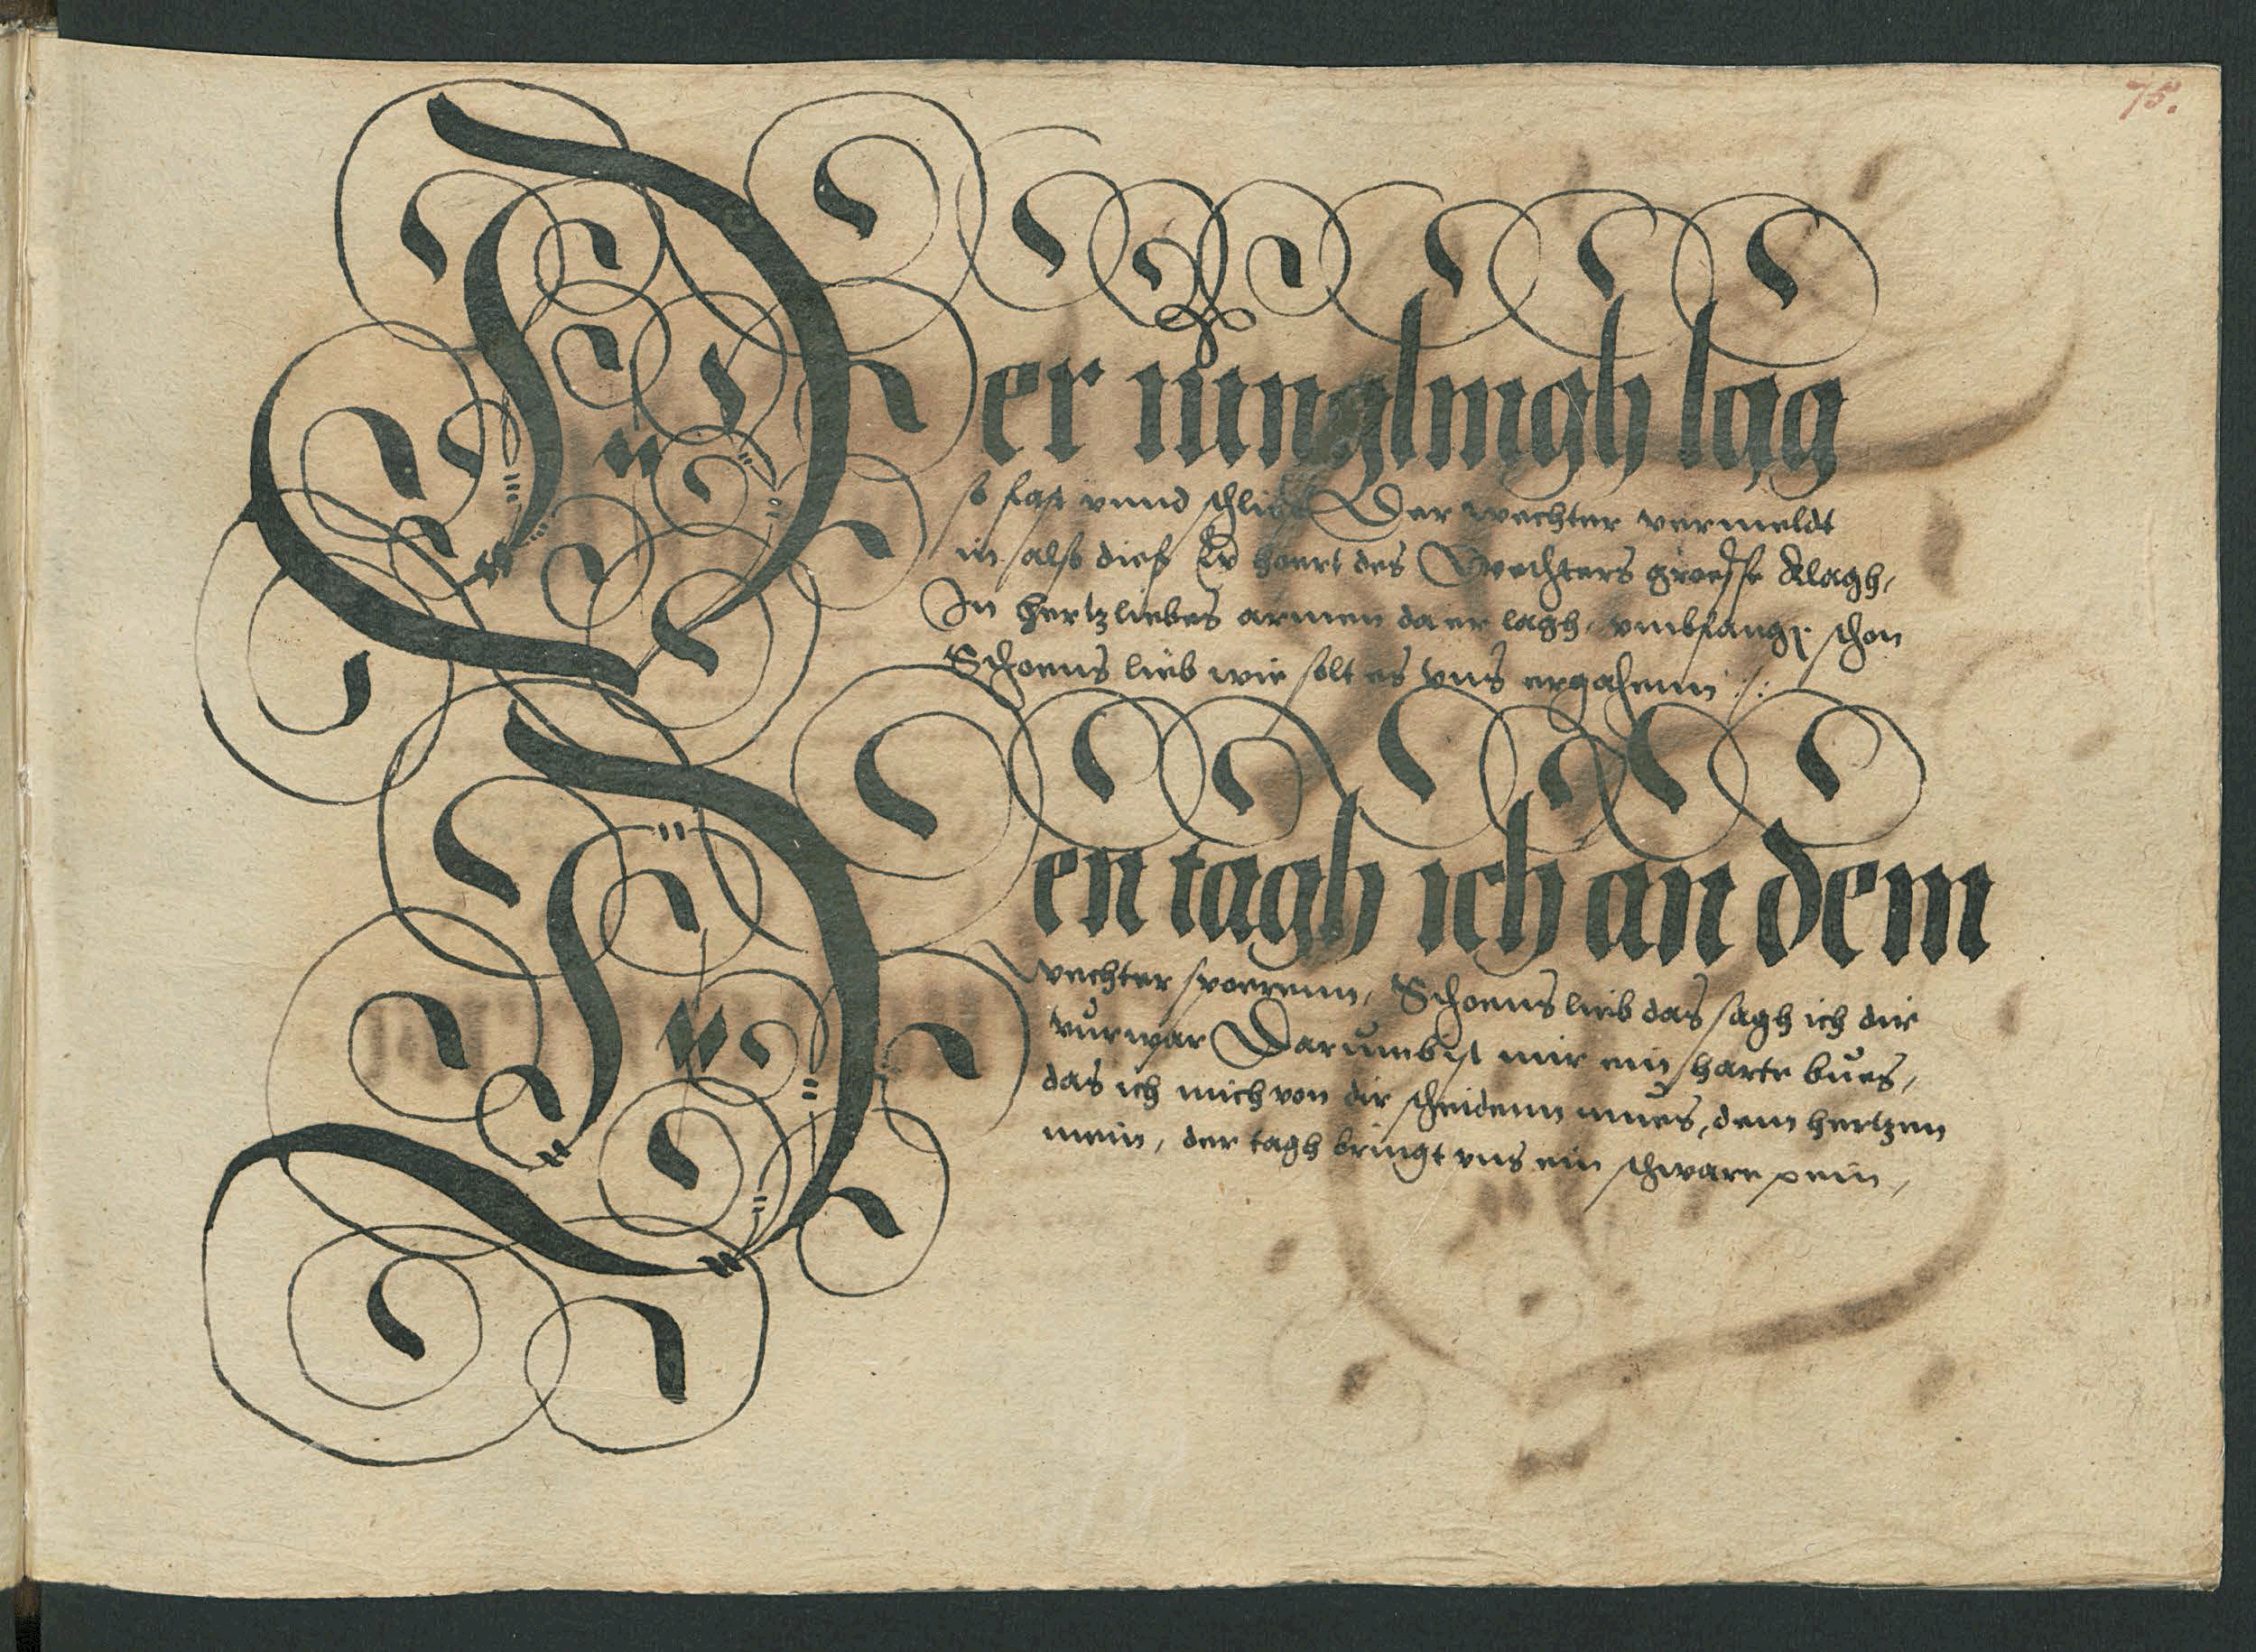 75.
Der iunglingh lag
so fast vnnd schlieff Der wechter vermeldt
in also dief Er hoert des Wechters groesse klagh,
In hertzliebes armen da er lagh, vmbfangen schon
Schoens lieb wie solt es vns ergahenn :/:
Den tagh ich an dem
wechter spoerenn, Schoens lieb das sagh ich dir
vurwar Darumb ist mir ein harte bues,
das ich mich von dir scheidenn mues, dem hertzen
mein, der tagh bringt vns ein schware pein,